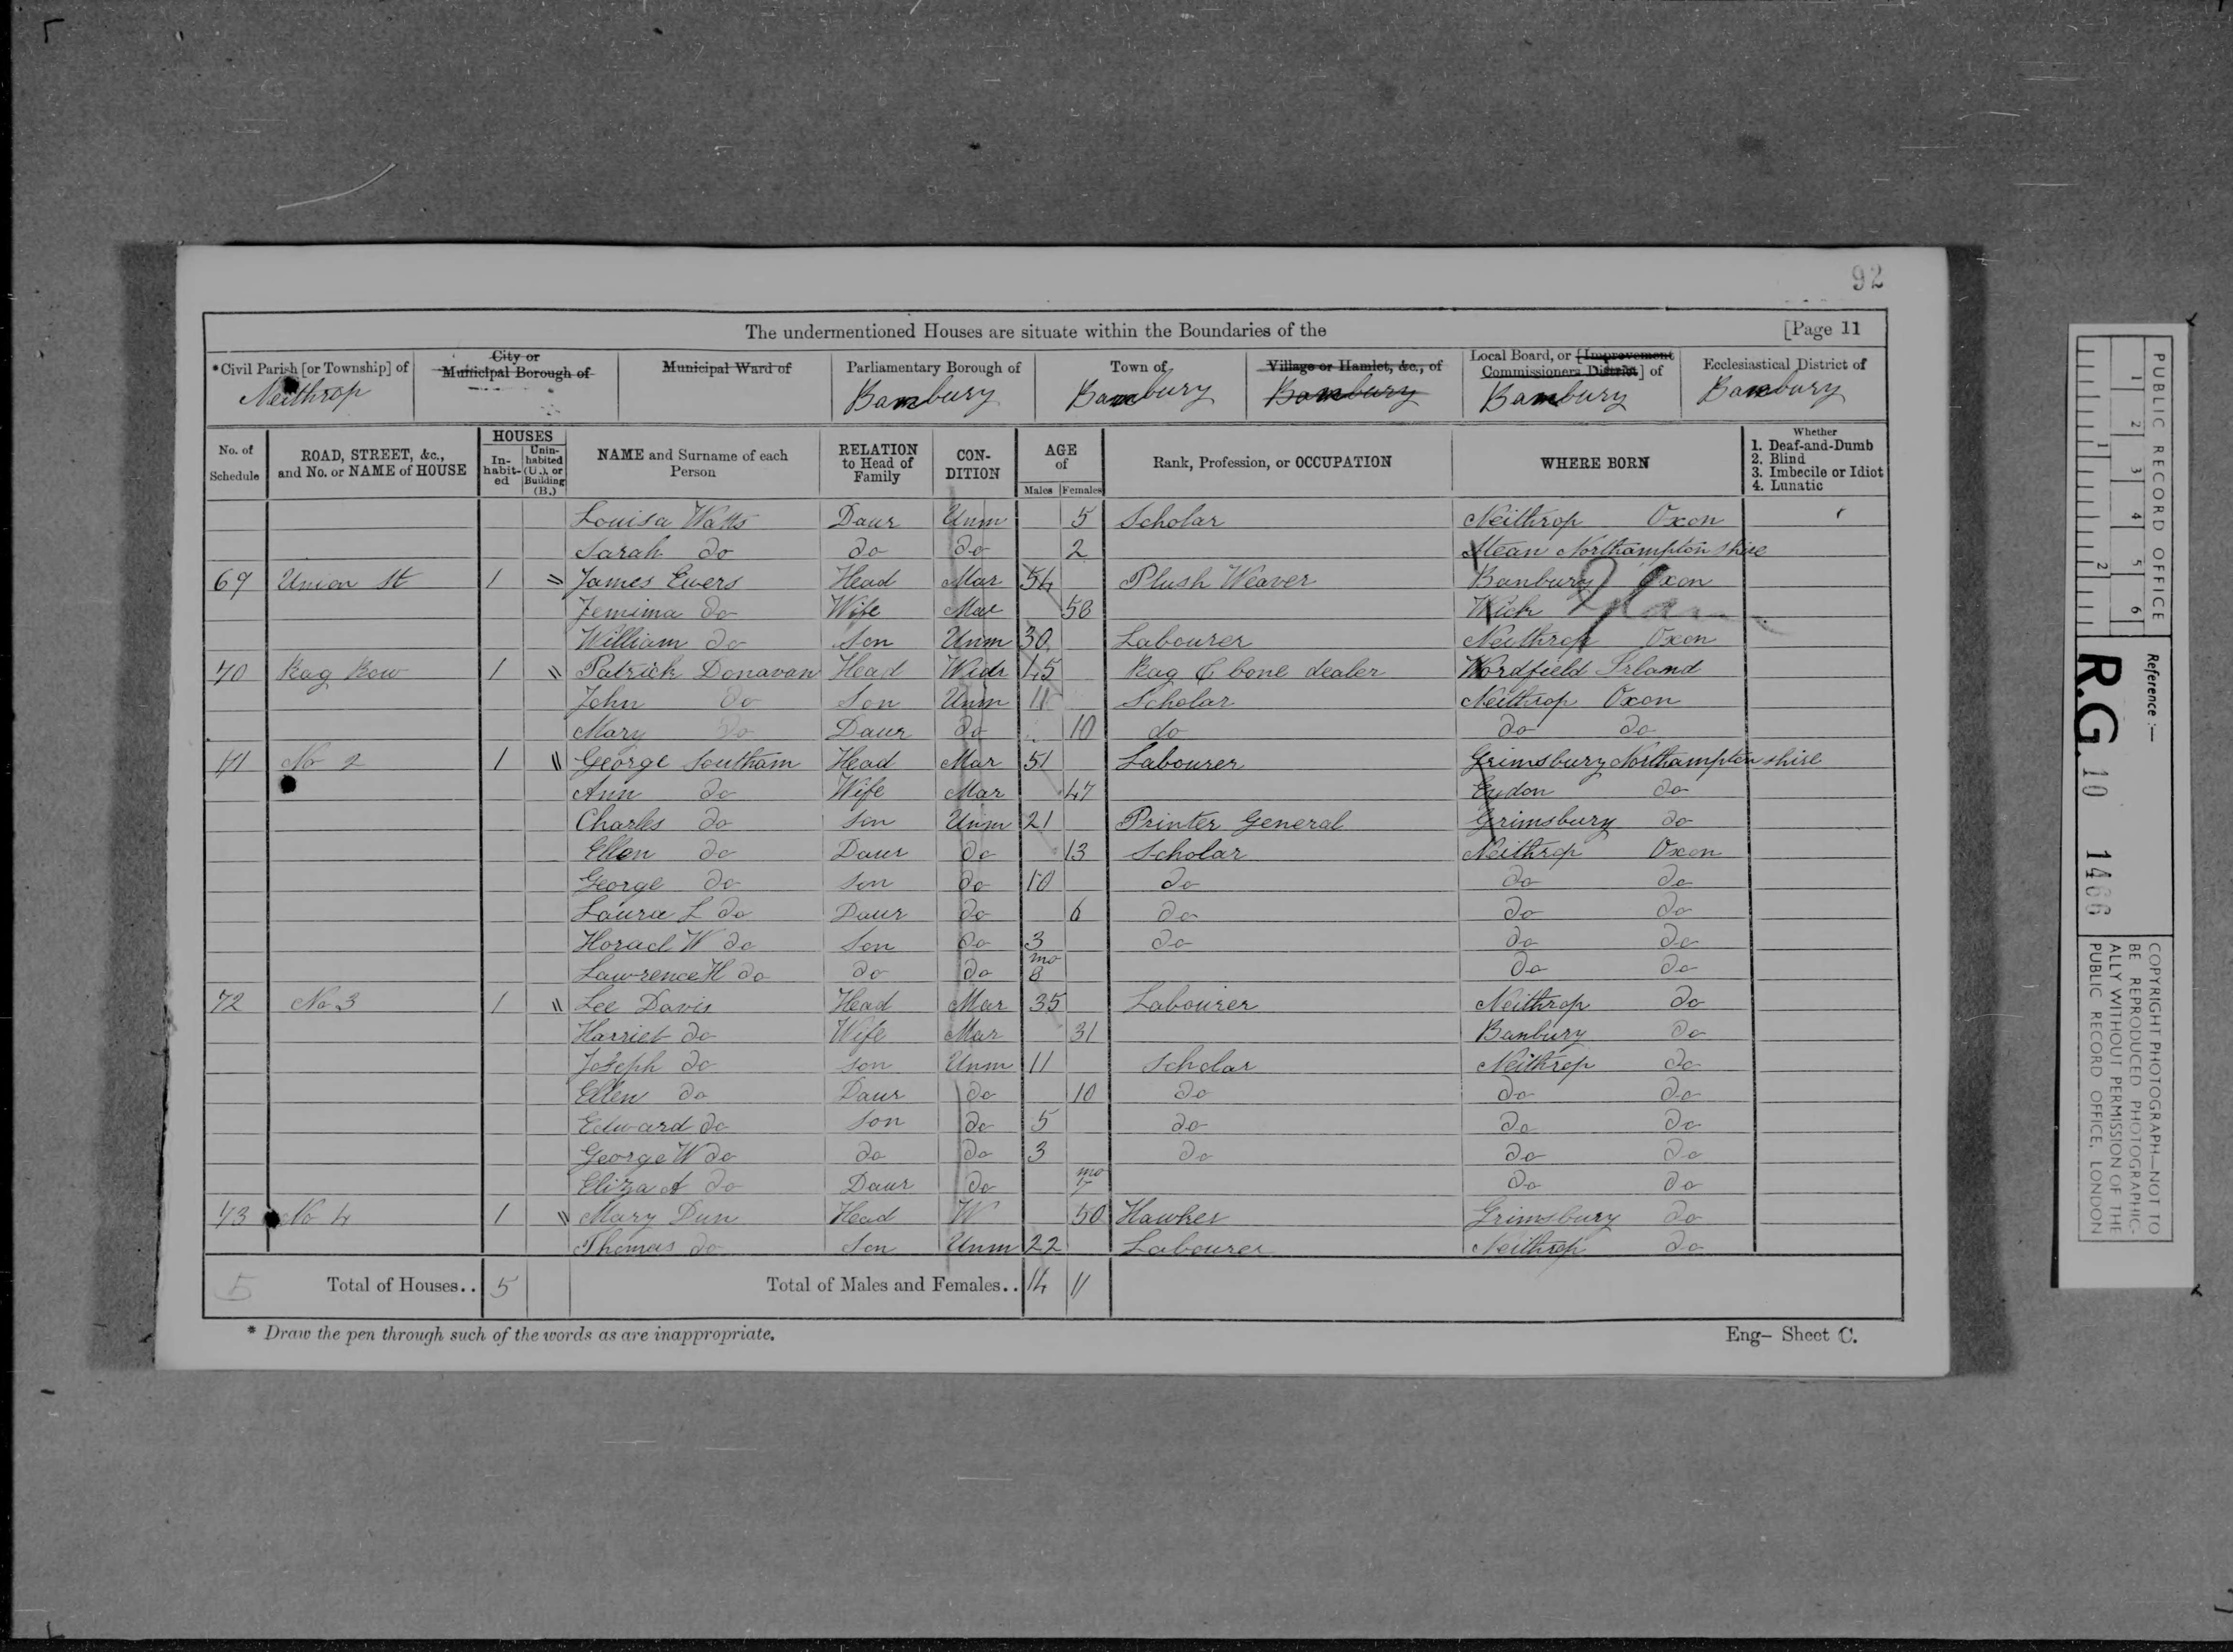 92
The undermentioned Houses are situate within the Boundaries of the [Page 11
*Civil Parish [or Township] of City or Municipal Borough of Municipal Ward of Parliamentary Borough of Town of Village or Hamlet, &c., of Local Board, or [Improvement Commissioners District] of Ecclesiastical District of
Neithrop Banbury Banbury Banbury Banbury Banbury
No. of Schedule ROAD, STREET, &c., and No. or NAME of HOUSE HOUSES In-habit-ed Unin-habited (U.), or Building (B.) NAME and Surname of each Person RELATION to Head of Family CON-DITION AGE of Males Females Rank, Profession, or OCCUPATION WHERE BORN Whether 1. Deaf-and-Dumb 2. Blind 3. Imbecile or Idiot 4. Lunatic
Louisa Watts Daur Unm 5 Scholar Neithrop Oxon
Sarah do do do 2 Northamptonshire
69 Union St 1 James Ewers Head Mar 54 Plush Weaver Banbury Oxon
Jemima do Wife Mar 58 Wick
William do Son Unm 30 Labourer Neithrop Oxon
70 Rag Row 1 Patrick Donavan Head Widr 45 Rag & bone dealer Wordfield Irland
John do Son Unm 11 Scholar Neithrop Oxon
Mary do Daur do 10 do do do
71 No 2 1 George Southam Head Mar 51 Labourer Grimsbury Northamptonshire
Ann do Wife Mar 47 Eydon do
Charles do Son Unm 21 Printer General Grimsbury do
Ellen do Daur do 13 Scholar Neithrop Oxon
George do Son do 10 do do do
Laura L do Daur do 6 do do do
Horace W do Son do 3 do do do
Lawrence H do do do mo 8 do do
72 No 3 1 Lee Davis Head Mar 35 Labourer Neithrop do
Harriet do Wife Mar 31 Banbury do
Joseph do Son Unm 11 Scholar Neithrop do
Ellen do Daur do 10 do do do
Edward do Son do 5 do do do
George W do do do 3 do do do
Eliza A do Daur do mo do do
73 No 4 1 Mary Dun Head W 50 Hawker Grimsbury do
Thomas do Son Unm 22 Labourer Neithrop do
5 Total of Houses.. 5 Total of Males and Females.. 14 11
* Draw the pen through such of the words as are inappropriate.
Eng- Sheet C.
PUBLIC RECORD OFFICE
1 2 3 4 5 6
1 2
Reference :—
R.G. 10 1466
COPYRIGHT PHOTOGRAPH—NOT TO
BE REPRODUCED PHOTOGRAPHIC-
ALLY WITHOUT PERMISSION OF THE
PUBLIC RECORD OFFICE, LONDON